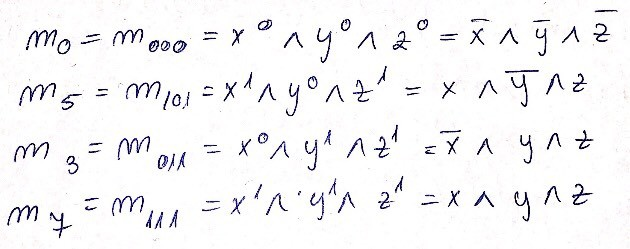 m₀ = m₀₀₀ = x⁰ ∧ y⁰ ∧ z⁰ = x̅ ∧ y̅ ∧ z̅
m₅ = m₁₀₁ = x¹ ∧ y⁰ ∧ z¹ = x ∧ y̅ ∧ z
m₃ = m₀₁₁ = x⁰ ∧ y¹ ∧ z¹ = x̅ ∧ y ∧ z
m₇ = m₁₁₁ = x¹ ∧ y¹ ∧ z¹ = x ∧ y ∧ z